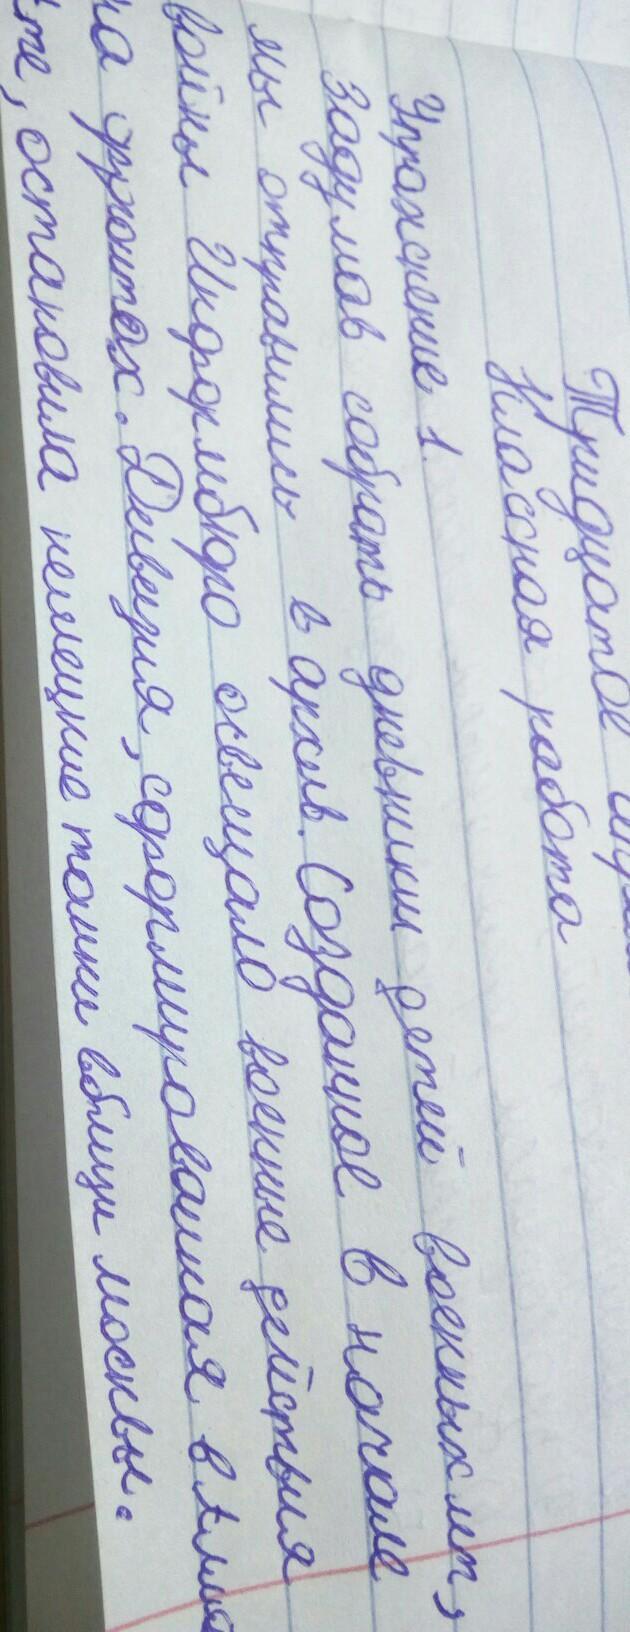 Тридцатое
Классная работа
Упражнение 1.
Задумав собрать дневники детей военных лет,
мы отправились в архив. Созданное в начале
войны Информбюро освещало военные действия
на фронтах. Дивизия, сформированная в Алма
те, остановила немецкие танки вблизи москвы.